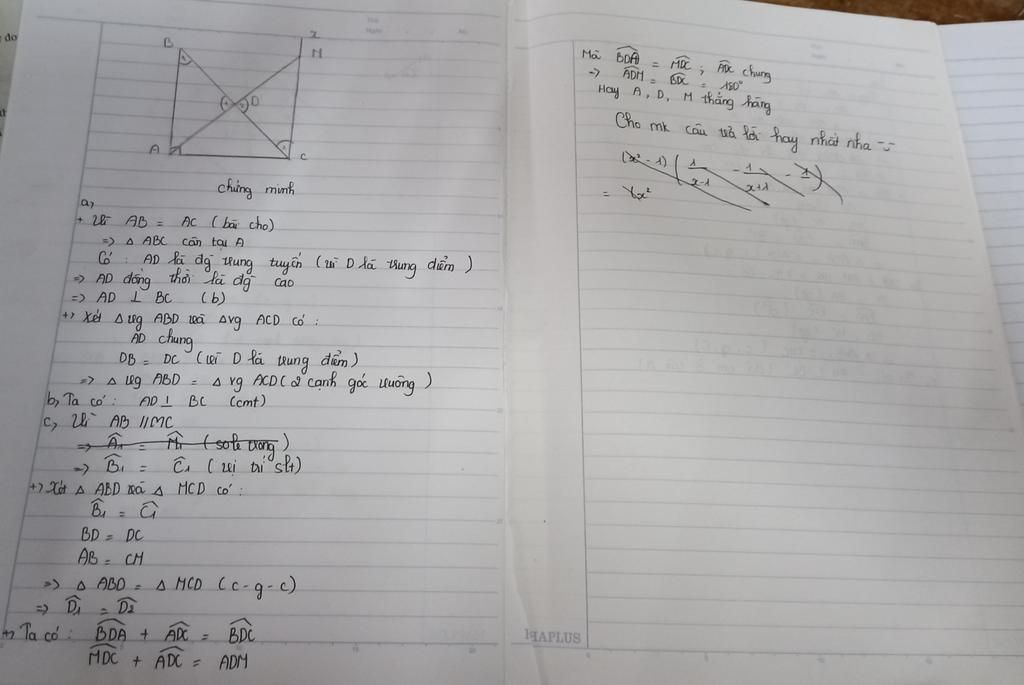 B
x
M
D
A
C
chứng minh
a,
+ Vì AB = AC (bài cho)
=> △ ABC cân tại A
Có : AD là đg trung tuyến (vì D là trung điểm)
=> AD đồng thời là đg cao
=> AD ⊥ BC (b)
+) Xét △ vg ABD và △vg ACD có :
AD chung
DB = DC (vì D là trung điểm)
=> △ vg ABD = △ vg ACD (2 cạnh góc vuông)
b, Ta có : AD ⊥ BC (cmt)
c, Vì AB // MC
=> Â1 = M̂1 (so le trong)
=> B̂1 = Ĉ1 (vị trí slt)
+) Xét △ ABD và △ MCD có :
B̂1 = Ĉ1
BD = DC
AB = CM
=> △ ABD = △ MCD (c-g-c)
=> D̂1 = D̂2
+) Ta có : B̂DA + ÂDC = B̂DC
M̂DC + ÂDC = ADM
Mà B̂DA = M̂DC ; ÂDC chung
=> ÂDM = B̂DC = 180°
Hay A, D, M thẳng hàng
Cho mk câu trả lời hay nhất nha
(x² - 1) (1/x-1 - 1/x+1 - 1)
HAPLUS